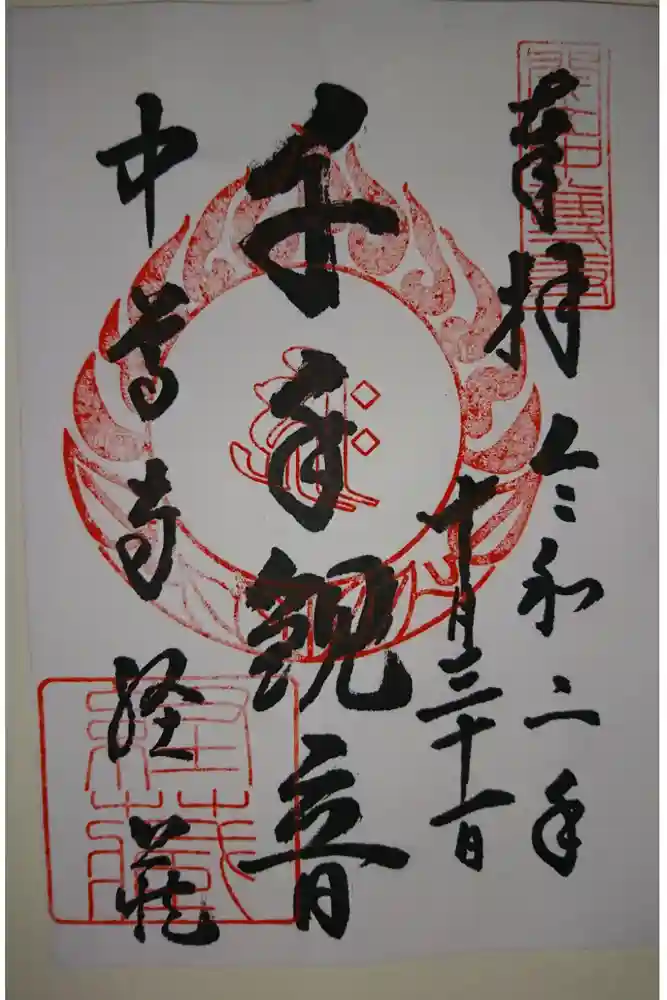 奉拝
令和二年
十月三十一日
千手観音
中尊寺 経蔵
經藏